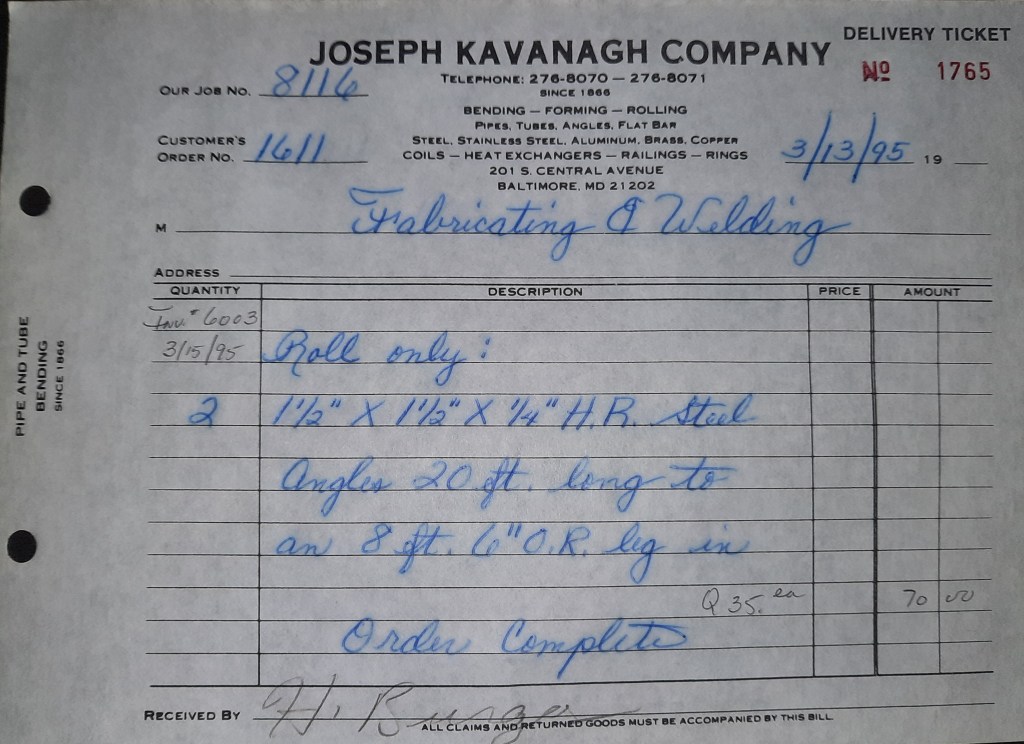 DELIVERY TICKET
JOSEPH KAVANAGH COMPANY
No 1765
TELEPHONE: 276-8070 — 276-8071
SINCE 1866
OUR JOB NO. 8116
BENDING — FORMING — ROLLING
PIPES, TUBES, ANGLES, FLAT BAR
CUSTOMER'S
ORDER NO. 1611
STEEL, STAINLESS STEEL, ALUMINUM, BRASS, COPPER
COILS — HEAT EXCHANGERS — RAILINGS — RINGS
3/13/95 19
201 S. CENTRAL AVENUE
BALTIMORE, MD 21202
M Fabricating & Welding
ADDRESS
QUANTITY DESCRIPTION PRICE AMOUNT
Inv. # 6003
3/15/95 Roll only:
2 1 1/2" X 1 1/2" X 1/4" H.R. Steel
Angles 20 ft. long to
an 8 ft. 6" O.R. leg in
Q 35. ea 70 00
Order Complete
RECEIVED BY H.
ALL CLAIMS AND RETURNED GOODS MUST BE ACCOMPANIED BY THIS BILL
PIPE AND TUBE
BENDING
SINCE 1866